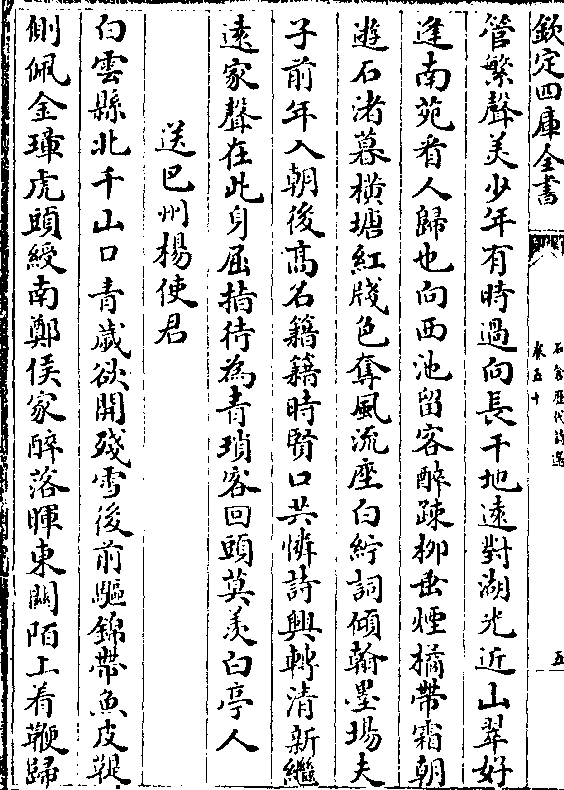 欽定四庫全書
石倉歷代詩選
卷五十
五
管繁聲美少年有時過向長干地遠對湖光近山翠好
逢南苑看人歸也向西池留客醉疎柳垂煙橘帶霜朝
遊石渚暮橫塘紅牋色奪風流座白紵詞傾翰墨場夫
子前年入朝後髙名籍籍時賢口共憐詩興轉清新繼
逺家聲在此身屈指待為青瑣客回頭莫羨白亭人
送巴州楊使君
白雲縣北千山口青嵗欲開殘雪後前驅錦帶魚皮鞮
側佩金璋虎頭綬南鄭侯家醉落暉東闗陌上着鞭歸